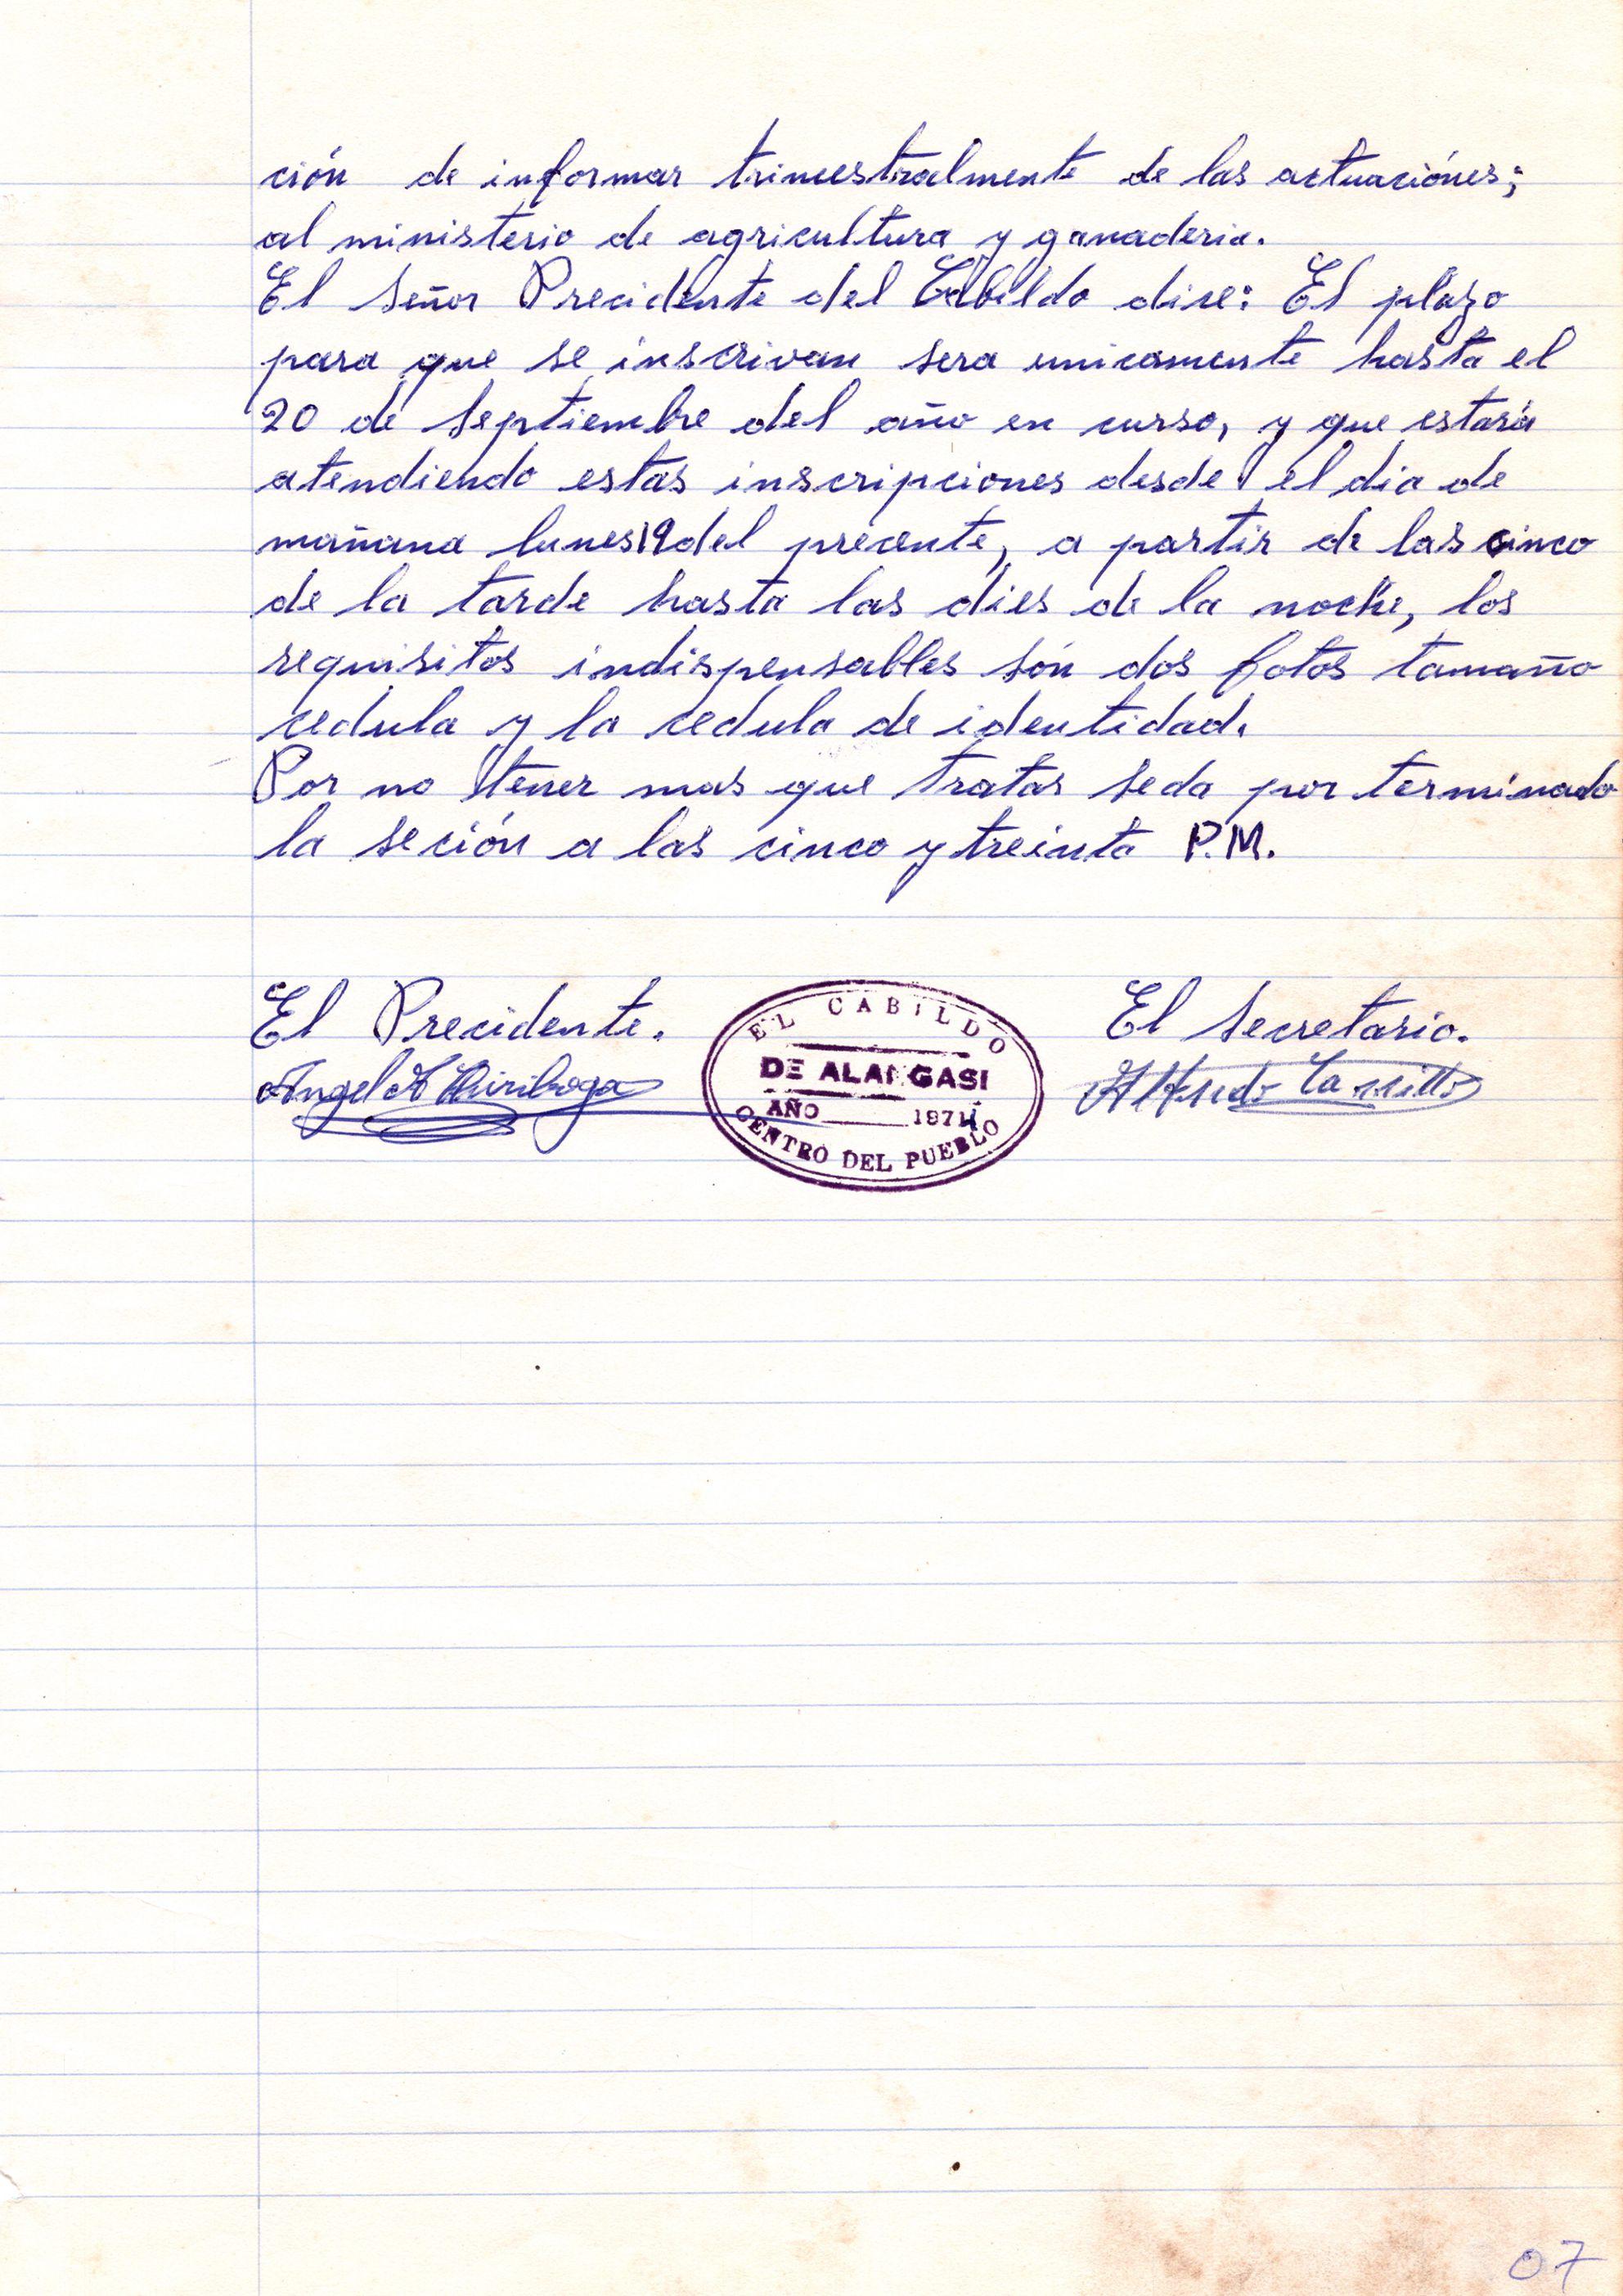 ción de informar trimestralmente de las actuaciónes;
al ministerio de agricultura y ganaderia.
El Señor Precidente del Cabildo dise: El plazo
para que se inscrivan sera unicamente hasta el
20 de Septiembre del año en curso, y que estará
atendiendo estas inscripciones desde el dia de
mañana lunes 19 del precente, a partir de las cinco
de la tarde hasta las dies de la noche, los
requisitos indispensables són dos fotos tamaño
cedula y la cedula de identidad.
Por no tener mas que tratar se da por terminado
la seción a las cinco y treinta P.M.
El Precidente. El Secretario.
Angel Chiriboga Alfredo Carrillo
EL CABILDO
DE ALANGASI
AÑO 1974
CENTRO DEL PUEBLO
07